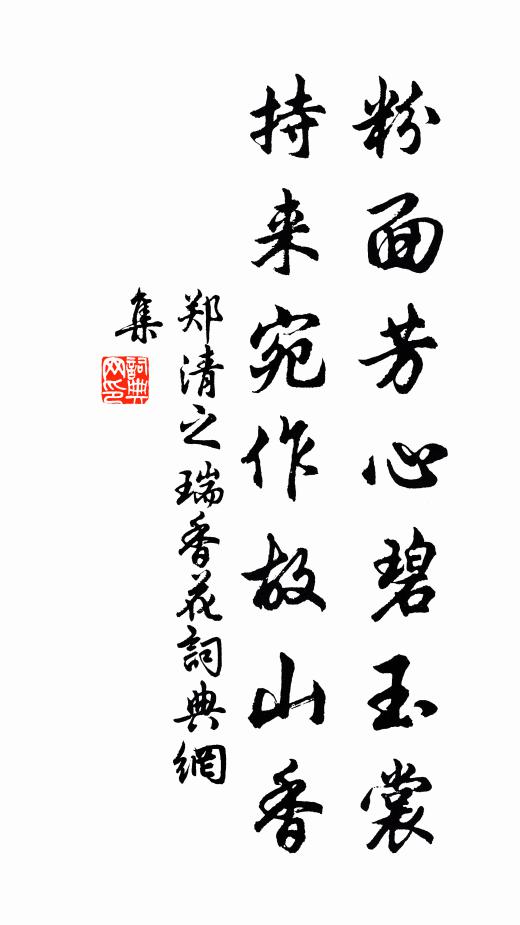 粉面芳心碧玉裳
持来宛作故山香
郑清之瑞香花詞典網
集
詞典网印